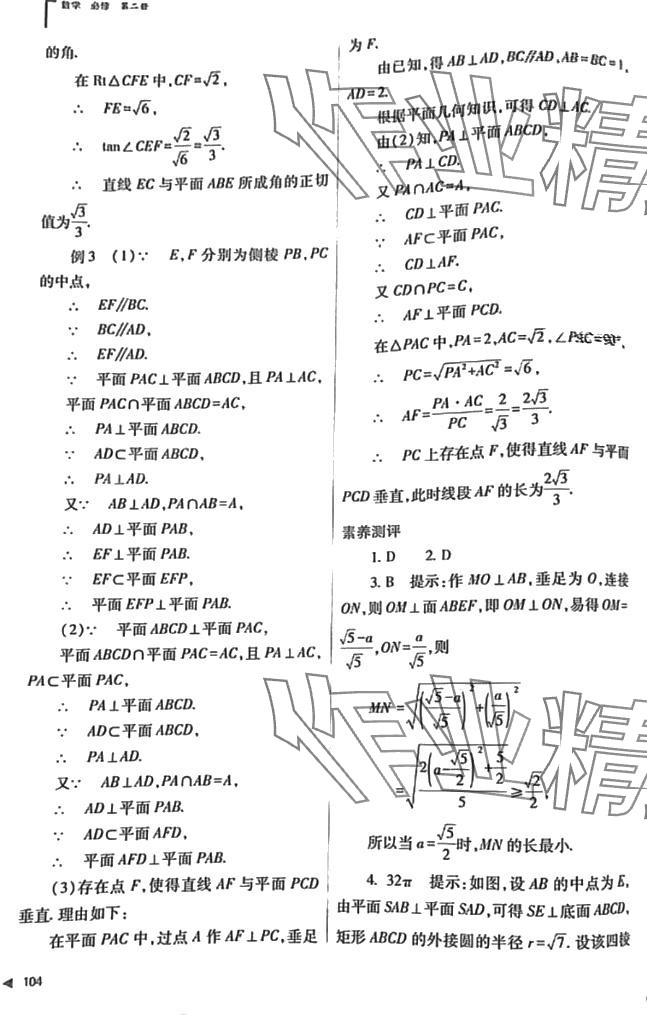 数学 必修 第二册
的角.
在 Rt△CFE 中,CF=√2,
∴ FE=√6,
∴ tan∠CEF=√2/√6=√3/3.
∴ 直线 EC 与平面 ABE 所成角的正切
值为√3/3.
例3 (1)∵ E,F 分别为侧棱 PB,PC
的中点,
∴ EF∥BC.
∵ BC∥AD,
∴ EF∥AD.
∵ 平面 PAC⊥平面 ABCD,且 PA⊥AC,
平面 PAC∩平面 ABCD=AC,
∴ PA⊥平面 ABCD.
∵ AD⊂平面 ABCD,
∴ PA⊥AD.
又∵ AB⊥AD,PA∩AB=A,
∴ AD⊥平面 PAB,
∴ EF⊥平面 PAB.
∵ EF⊂平面 EFP,
∴ 平面 EFP⊥平面 PAB.
(2)∵ 平面 ABCD⊥平面 PAC,
平面 ABCD∩平面 PAC=AC,且 PA⊥AC,
PA⊂平面 PAC,
∴ PA⊥平面 ABCD.
∵ AD⊂平面 ABCD,
∴ PA⊥AD.
又∵ AB⊥AD,PA∩AB=A,
∴ AD⊥平面 PAB.
∵ AD⊂平面 AFD,
∴ 平面 AFD⊥平面 PAB.
(3)存在点 F,使得直线 AF 与平面 PCD
垂直.理由如下:
在平面 PAC 中,过点 A 作 AF⊥PC,垂足
为 F.
由已知,得 AB⊥AD,BC∥AD,AB=BC=1,
AD=2.
根据平面几何知识,可得 CD⊥AC.
由(2)知,PA⊥平面 ABCD,
∴ PA⊥CD.
又 PA∩AC=A,
∴ CD⊥平面 PAC.
∵ AF⊂平面 PAC,
∴ CD⊥AF.
又 CD∩PC=C,
∴ AF⊥平面 PCD.
在△PAC 中,PA=2,AC=√2,∠PAC=90°,
∴ PC=√(PA²+AC²)=√6,
∴ AF=PA·AC/PC=2/√3=2√3/3.
∴ PC 上存在点 F,使得直线 AF 与平面
PCD 垂直,此时线段 AF 的长为2√3/3.
素养测评
1. D 2. D
3. B 提示:作 MO⊥AB,垂足为 O,连接
ON,则 OM⊥面 ABEF,即 OM⊥ON,易得 OM=
(√5-a)/√5,ON=a/√5,则
MN=√(((√5-a)/√5)²+(a/√5)²)
=√((2(a-√5/2)²+5/2)/5)≥√2/2,
所以当 a=√5/2时,MN 的长最小.
4. 32π 提示:如图,设 AB 的中点为 E,
由平面 SAB⊥平面 SAD,可得 SE⊥底面 ABCD,
矩形 ABCD 的外接圆的半径 r=√7. 设该四棱
104
作业精
作业精